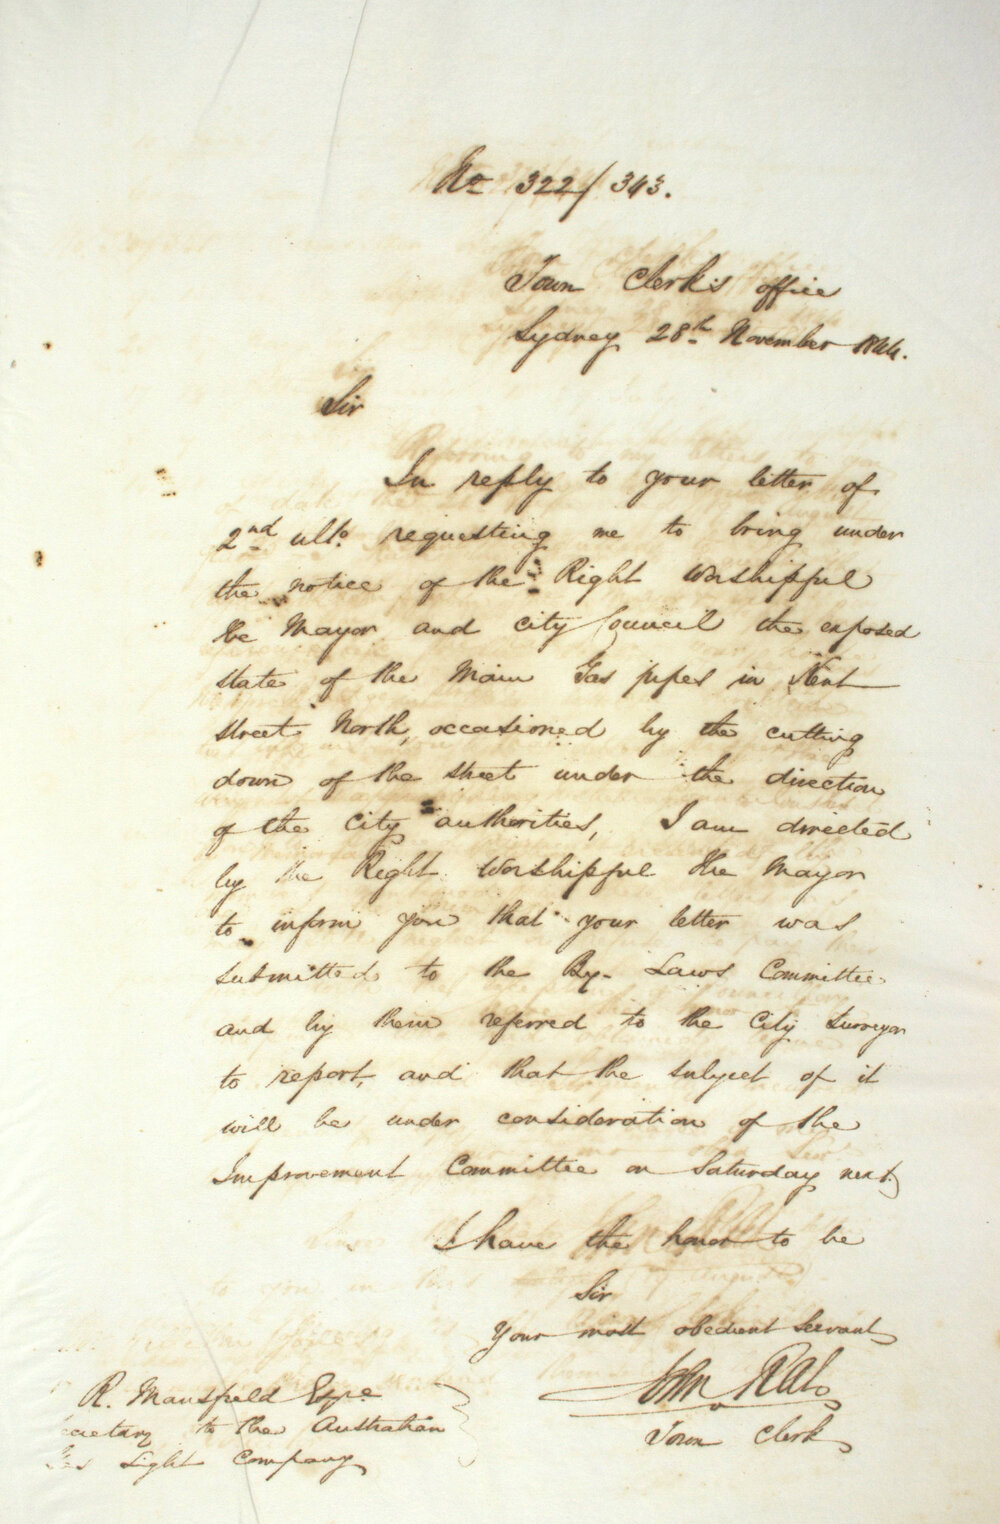 No 322/343.
Town Clerk's office
Sydney 28th November 1844.
Sir
In reply to your letter of
2nd ulto. requesting me to bring under
the notice of the Right Worshipful
the Mayor and City Council the exposed
state of the Main Gas pipes in Kent
Street North, occasioned by the cutting
down of the street under the direction
of the City authorities, I am directed
by the Right Worshipful the Mayor
to inform you that your letter was
submitted to the By-Laws Committee
and by them referred to the City Surveyor
to report, and that the subject of it
will be under consideration of the
Improvement Committee on Saturday next.
I have the honor to be
Sir
Your most obedient Servant
John Rae
Town Clerk
R. Mansfield Esqre
Secretary to the Australian
Gas Light Company